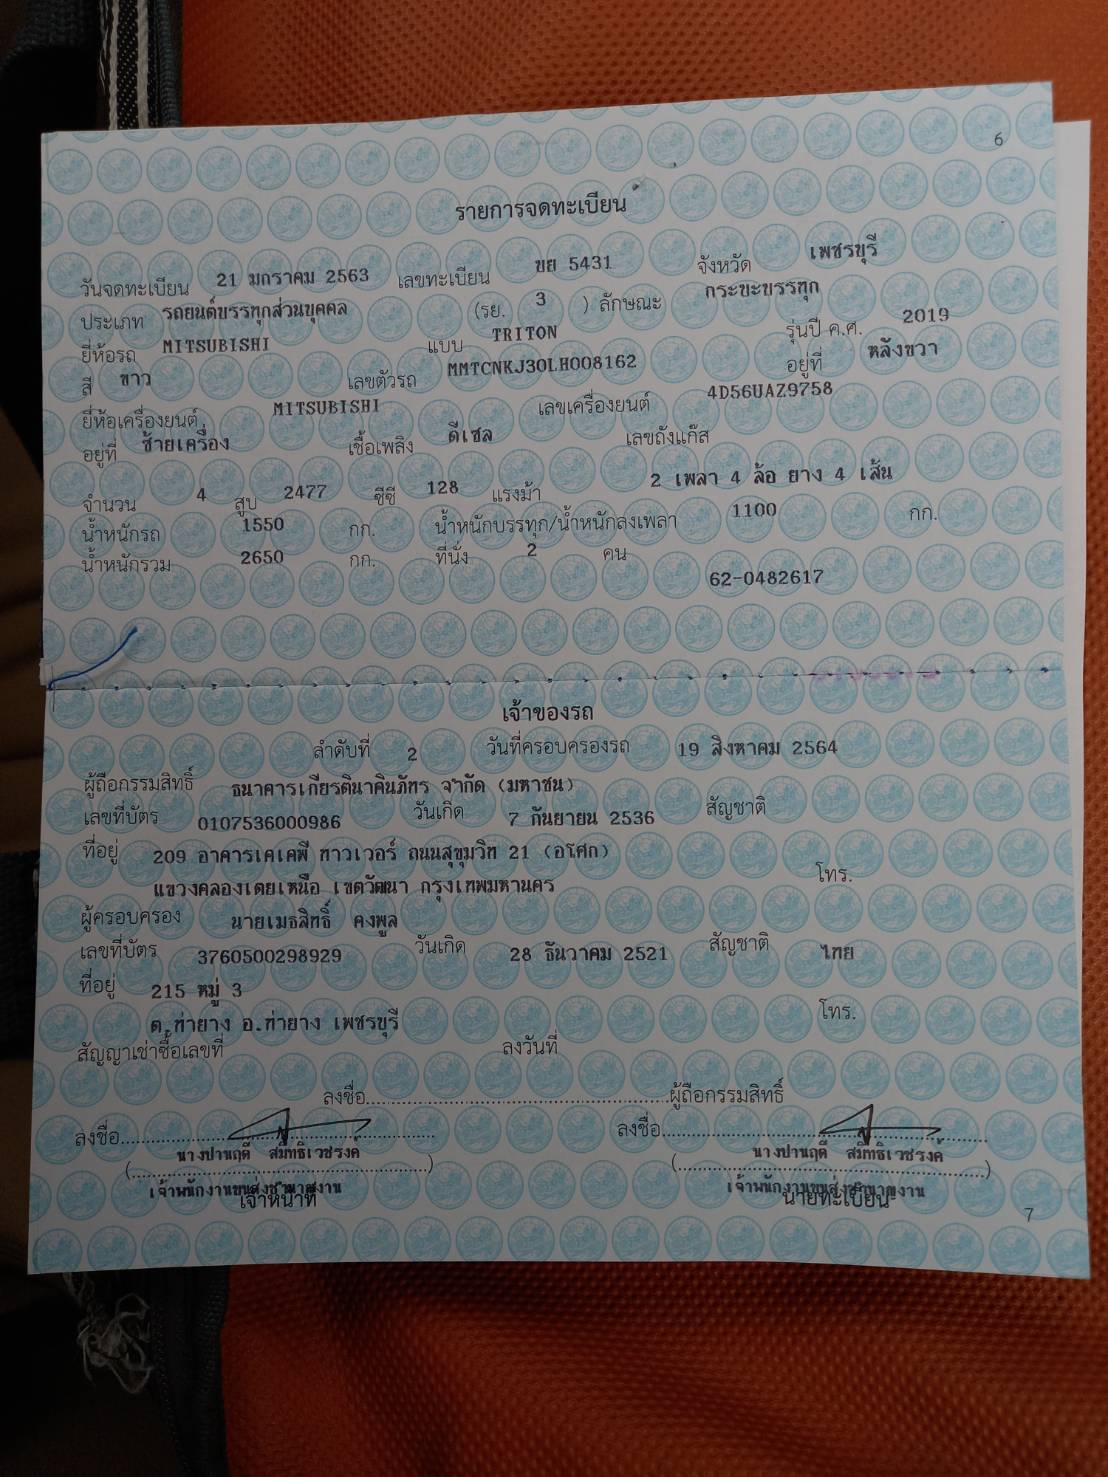 6
รายการจดทะเบียน
วันจดทะเบียน 21 มกราคม 2563 เลขทะเบียน ขย 5431 จังหวัด เพชรบุรี
ประเภท รถยนต์บรรทุกส่วนบุคคล (รย. 3 ) ลักษณะ กระบะบรรทุก
ยี่ห้อรถ MITSUBISHI แบบ TRITON รุ่นปี ค.ศ. 2019
สี ขาว เลขตัวรถ MMTCNKJ30LH008162 อยู่ที่ หลังขวา
ยี่ห้อเครื่องยนต์ MITSUBISHI เลขเครื่องยนต์ 4D56UAZ9758
อยู่ที่ ซ้ายเครื่อง เชื้อเพลิง ดีเซล เลขถังแก๊ส
จำนวน 4 สูบ 2477 ซีซี 128 แรงม้า 2 เพลา 4 ล้อ ยาง 4 เส้น
น้ำหนักรถ 1550 กก. น้ำหนักบรรทุก/น้ำหนักลงเพลา 1100 กก.
น้ำหนักรวม 2650 กก. ที่นั่ง 2 คน
62-0482617
เจ้าของรถ
ลำดับที่ 2 วันที่ครอบครองรถ 19 สิงหาคม 2564
ผู้ถือกรรมสิทธิ์ ธนาคารเกียรตินาคินภัทร จำกัด (มหาชน)
เลขที่บัตร 0107536000986 วันเกิด 7 กันยายน 2536 สัญชาติ
ที่อยู่ 209 อาคารเคเคพี ทาวเวอร์ ถนนสุขุมวิท 21 (อโศก)
แขวงคลองเตยเหนือ เขตวัฒนา กรุงเทพมหานคร โทร.
ผู้ครอบครอง นายเมธสิทธิ์ คงพูล
เลขที่บัตร 3760500298929 วันเกิด 28 ธันวาคม 2521 สัญชาติ ไทย
ที่อยู่ 215 หมู่ 3
ต.ท่ายาง อ.ท่ายาง เพชรบุรี โทร.
สัญญาเช่าซื้อเลขที่ ลงวันที่
ลงชื่อ ผู้ถือกรรมสิทธิ์
ลงชื่อ ลงชื่อ
(นางปานฤดี สมิทธิเวชรงค์) (นางปานฤดี สมิทธิเวชรงค์)
เจ้าพนักงานขนส่งชำนาญงาน เจ้าพนักงานขนส่งชำนาญงาน
เจ้าหน้าที่ นายทะเบียน
7